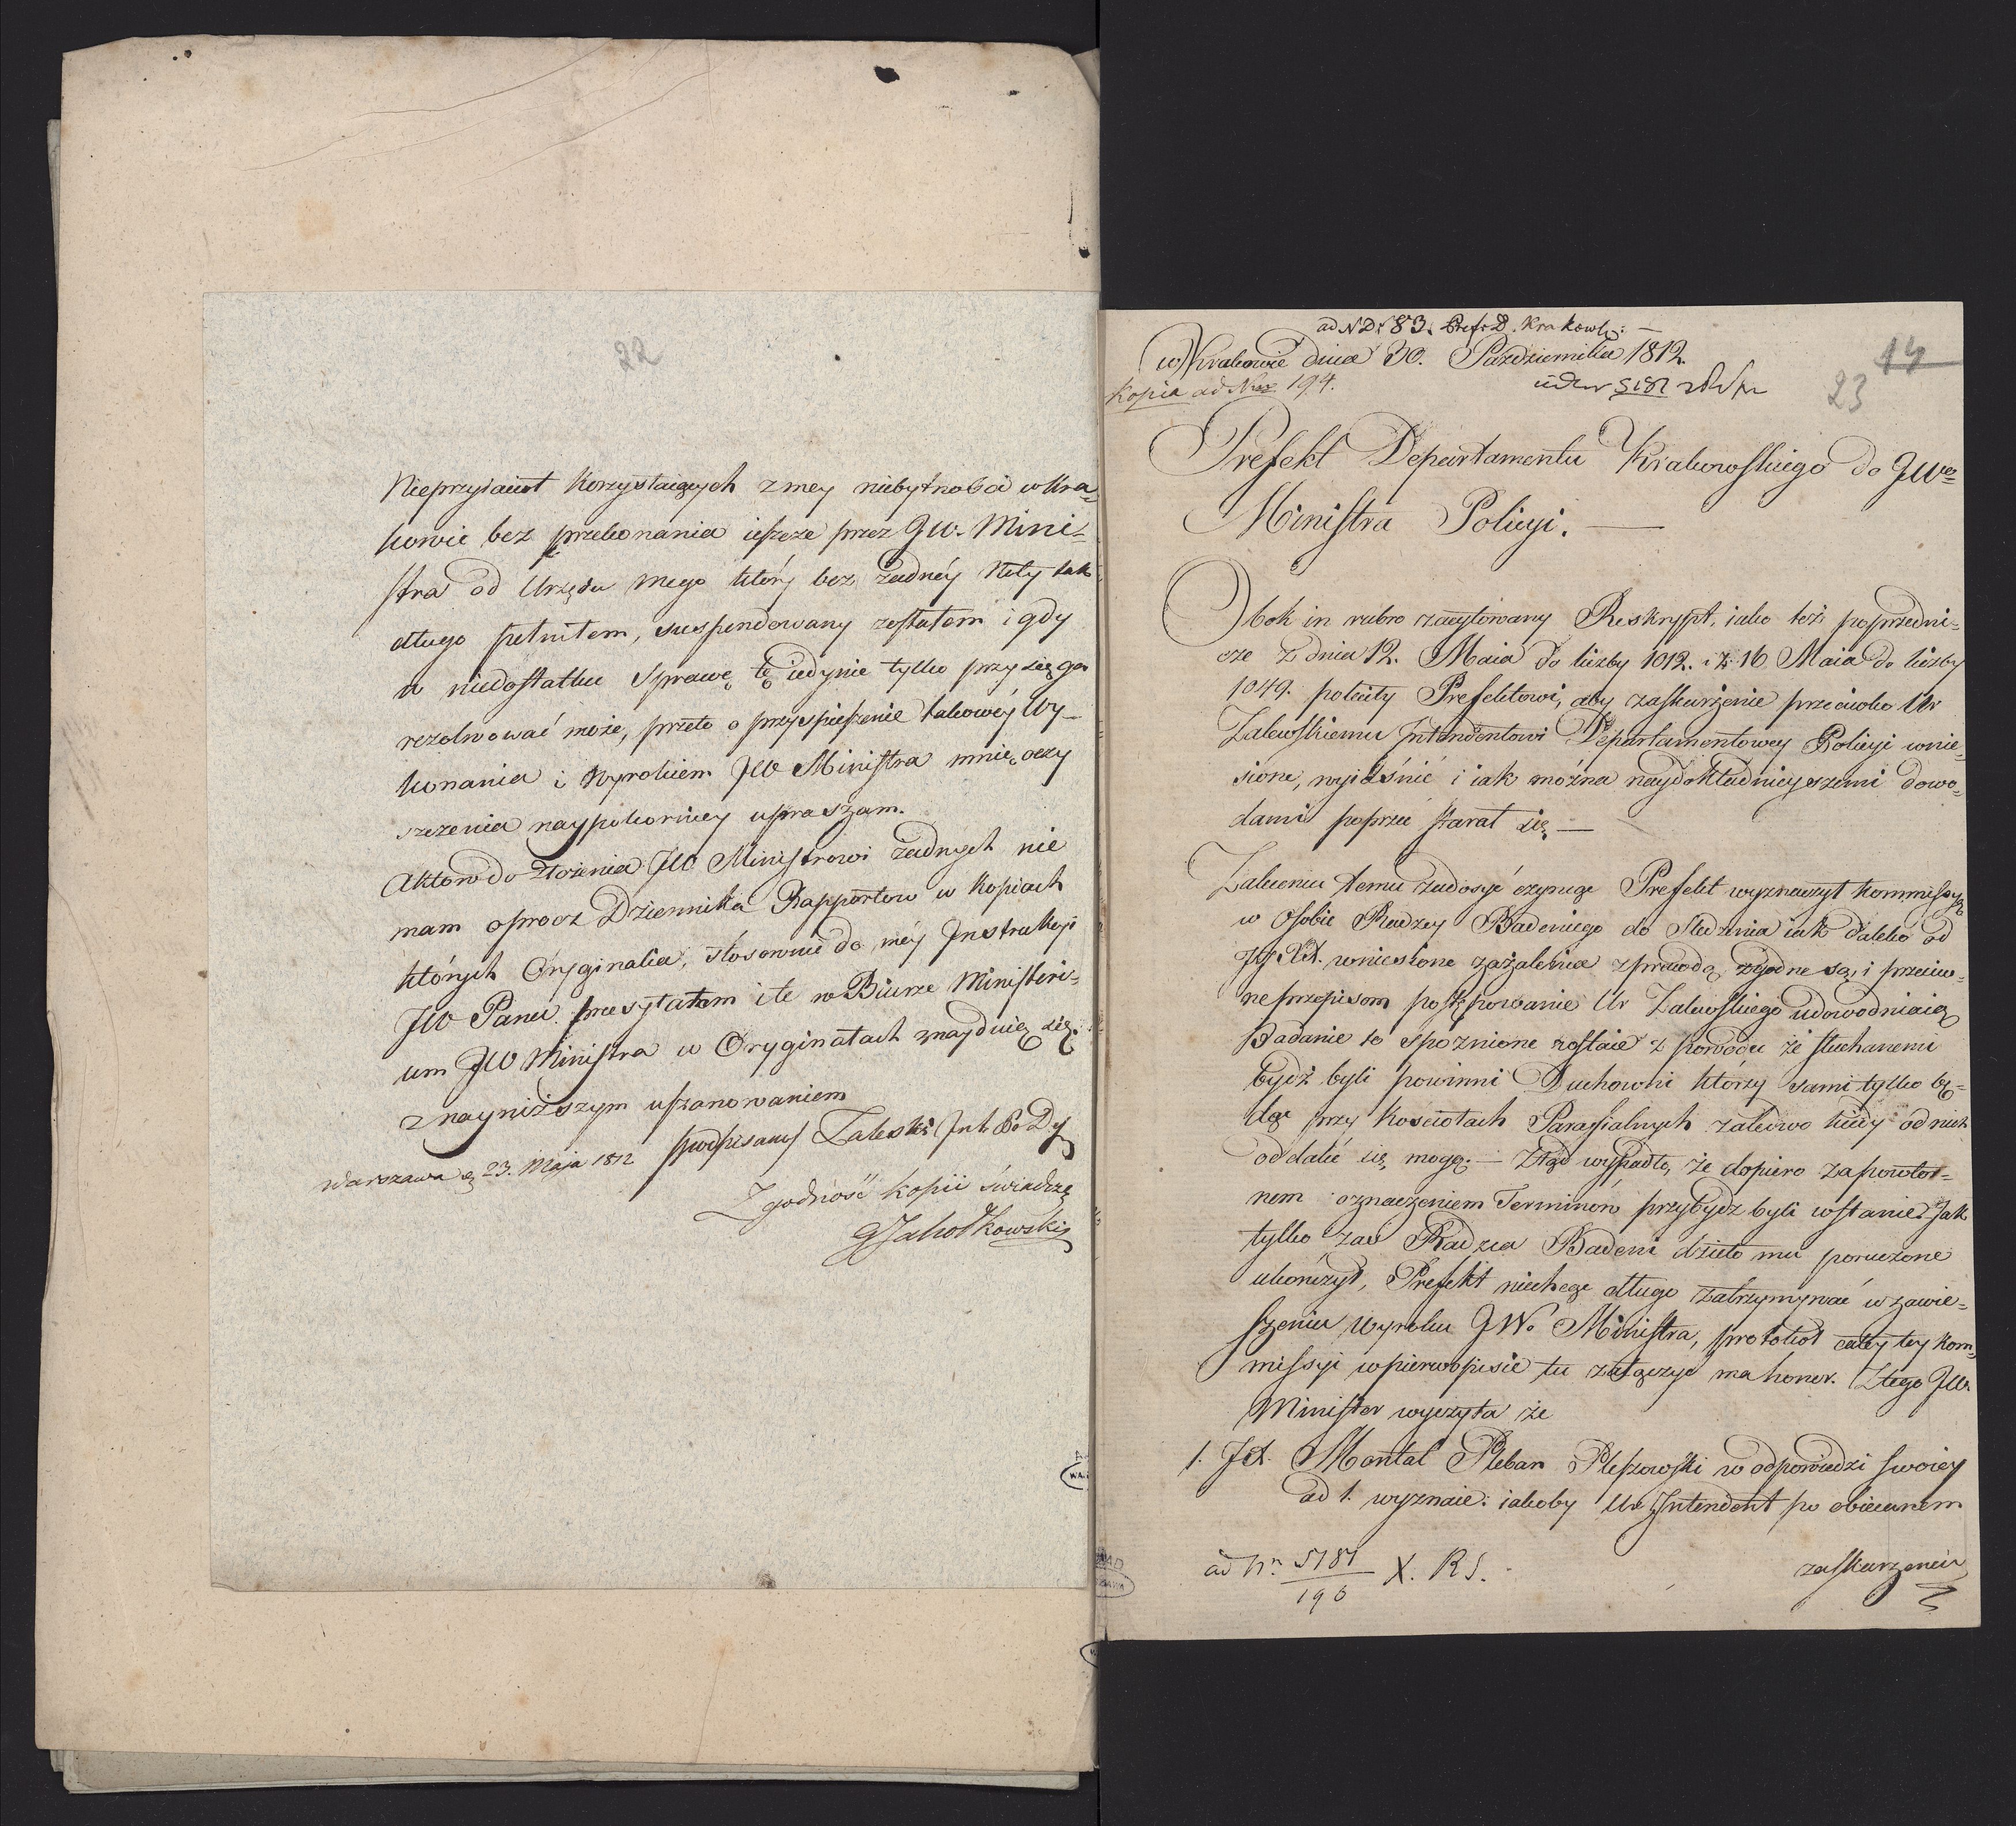 22
Nieprzyiaciół korzystaiących z mey niebytności w Kra=
kowie bez przekonania ieszcze przez JW. Mini=
stra od Urzędu mego który bez żadnéy Noty tak
długo pełniłem, suspendowany zostałem i gdy
w niedostatku Sprawę tę iedynie tylko przysięga
rezolwować może, przeto o przyspieszenie takowéy Wy=
konania i Wyrokiem JW Ministra mnie oczy
szczenia naypokorniey upraszam.
Aktow do złożenia JW Ministrowi żadnych nie
mam oprocz Dziennika Rapportow w Kopiach
których Oryginalia, stosownie do méy Instrukcyi
JW Panu przesyłałem i te w Biurze Ministeri=
um JW Ministra w Oryginałach znayduią się.
z nayniższym uszanowaniem
podpisany Zaleski Int. Po Dy
Warszawa d 23. Maja 1812
Zgodność kopii świadczę
Jahołkowski
ad N D: 83. Pref: D. Krakowk: —
w Krakowie dnia 30. Pazdziernika 1812.
Kopia ad Nro 194.
5181
14
23
Prefekt Departamentu Krakowskiego do JWo=
Ministra Policyi. —
Obok in rubro zacytowany Reskrypt, iako też poprzedni=
cze z dnia 12. Maia do liczby 1012. i z 16 Maia do liczby
1049. poleciły Prefektowi, aby zaskarżenie przeciwko Ur
Zalewskiemu Intendentowi Departamentowey Policyi wnie=
sione, wyiaśnić i iak można naydokładnieyszemi dowo=
dami poprzeć starał się —
Zaleceniu temu zadosyć czyniąc Prefekt wyznaczył Kommissyą
w osobie Radzcy Badeniego do śledzenia iak daleko od
JJ XX. wniesione zażalenia z prawdą zgodne są, i przeciw=
ne przepisom postępowanie Ur Zalewskiego udowodniaią
Badanie to spoznione zostaie z powodu że słuchanemi
bydź byli powinni Duchowni którzy sami tylko bę=
dąc przy kosciołach Parafialnych zaledwo kiedy od nich
oddalić się mogą. — Ztąd wypadło, że dopiero za powtor=
nem oznaczeniem Terminów przybydź byli wstanie. Jak
tylko zaś Radzca Badeni dzieło mu poruczone
ukończył, Prefekt niechcąc długo zatrzymywać w zawie=
szeniu wyroku JW. Ministra, protokoł cały tey Kom=
missyi w pierwopisie tu załączyć ma honor. Z tego JW.
Minister wyczyta że
1. JX. Montal Pleban Pleszowski w odpowiedzi swoiey
ad 1. wyznaie: iakoby Ur Intendent po obiecanem
zaskarzeniu
ad Nr. 5181 X. R S.
196